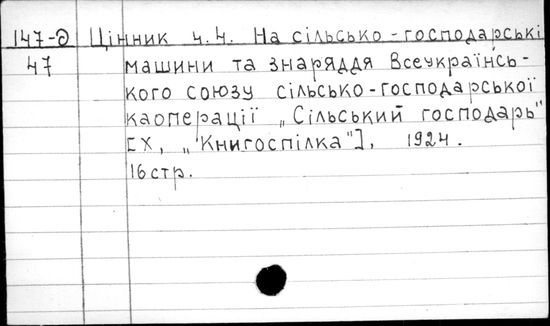 147-д Цінник ч.4. На сільсько-господарські
47 машини та знаряддя Всеукраїнсь-
кого союзу сільсько-господарської
каоперації „Сільський господарь"
[Х, „Книгоспілка"], 1924.
16 стр.